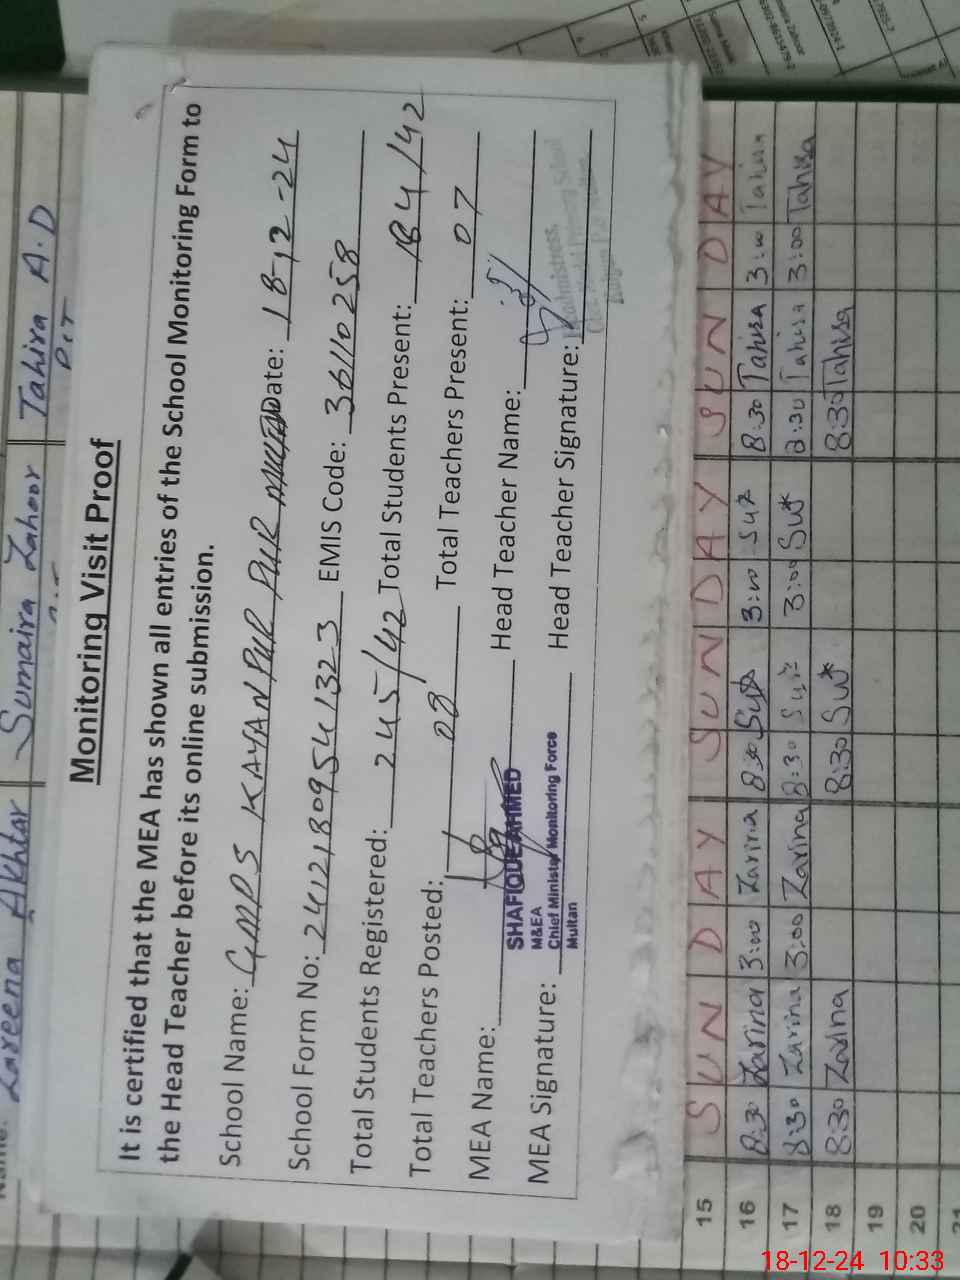 Zareena Akhtar Sumaira Zahoor Tahira A.D
Monitoring Visit Proof
It is certified that the MEA has shown all entries of the School Monitoring Form to
the Head Teacher before its online submission.
School Name: GMPS KAYANPUR PUR Date: 18-12-24
School Form No: EMIS Code: 36110258
Total Students Registered: 245/42 Total Students Present: 184/42
Total Teachers Posted: 08 Total Teachers Present: 07
MEA Name: Head Teacher Name:
SHAFIQUE AHMED
M&EA
Chief Minister Monitoring Force
Multan
MEA Signature: Head Teacher Signature:
Headmistress
15 SUNDAY SUNDAY SUNDAY
16 8:30 Zarina 3:00 Zarina 8:30 3:00 8:30 Tahira 3:00 Tahira
17 8:30 Zarina 3:00 Zarina 8:30 3:00 8:30 Tahira 3:00 Tahira
18 8:30 Zarina 8:30 8:30 Tahira
19
20
21
18-12-24 10:33